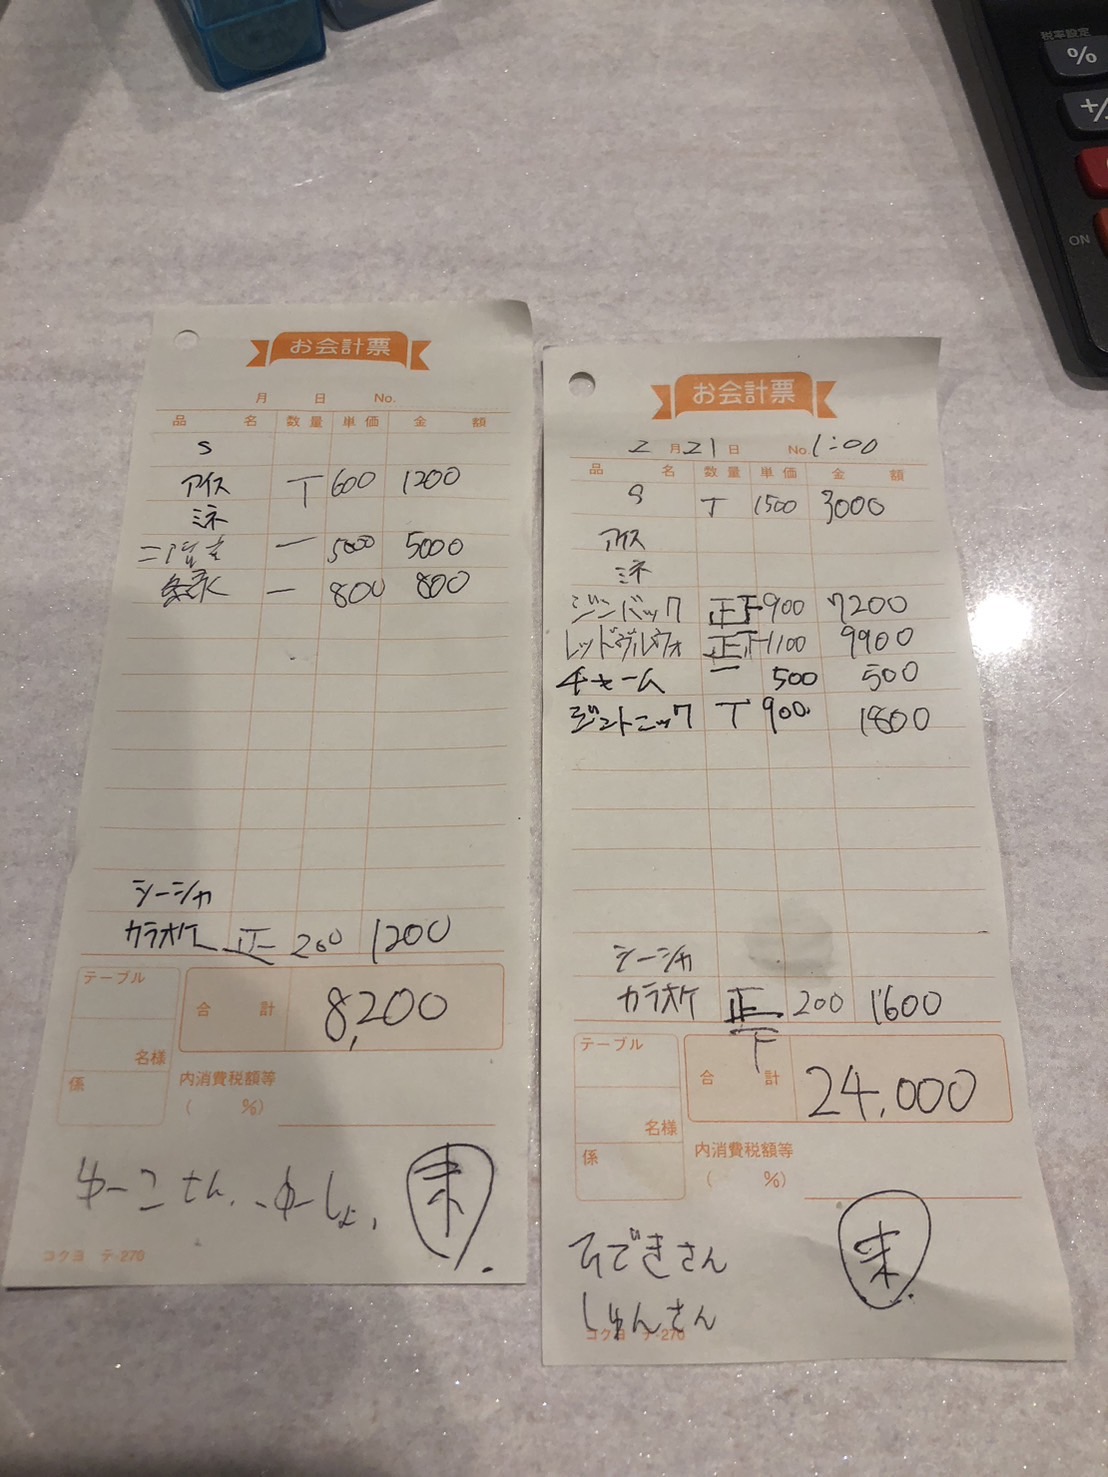 税率設定
%
+/
ON
お会計票
月 日 No.
品 名 数量 単価 金 額
S
アイス T 600 1200
ミネ
二階堂 一 5000 5000
一 800 800
シーシャ
カラオケ 正一 200 1200
テーブル
合 計 8,200
名様
係
内消費税額等
( %)
ゆーこさん、ゆーしょ、
コクヨ テ-270
お会計票
2月21日 No. 1:00
品 名 数量 単価 金 額
S T 1500 3000
アイス
ミネ
ジンバック 正下 900 7200
レッドヴルウォ 正正 1100 9900
チャーム 一 500 500
ジントニック T 900 1800
シーシャ
カラオケ 正下 200 1600
テーブル
合 計 24,000
名様
係
内消費税額等
( %)
ひできさん
しゅんさん
コクヨ テ-270